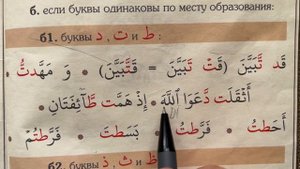 б. если буквы одинаковы по месту образования:
б1. буквы ط и ت ، د :
قَد تَّبَيَّنَ (قَتْ تَبَيَّنَ = قَتَّبَيَّنَ) • وَ مَهَّدتُّ •
أَثْقَلَت دَّعَوَا اللَّهَ • إِذْ هَمَّت طَّآئِفَتَانِ •
أَحَطتُ • فَرَّطتُ • بَسَطتَ • فَرَّطتُمْ
б2. буквы ظ и ث ، ذ :